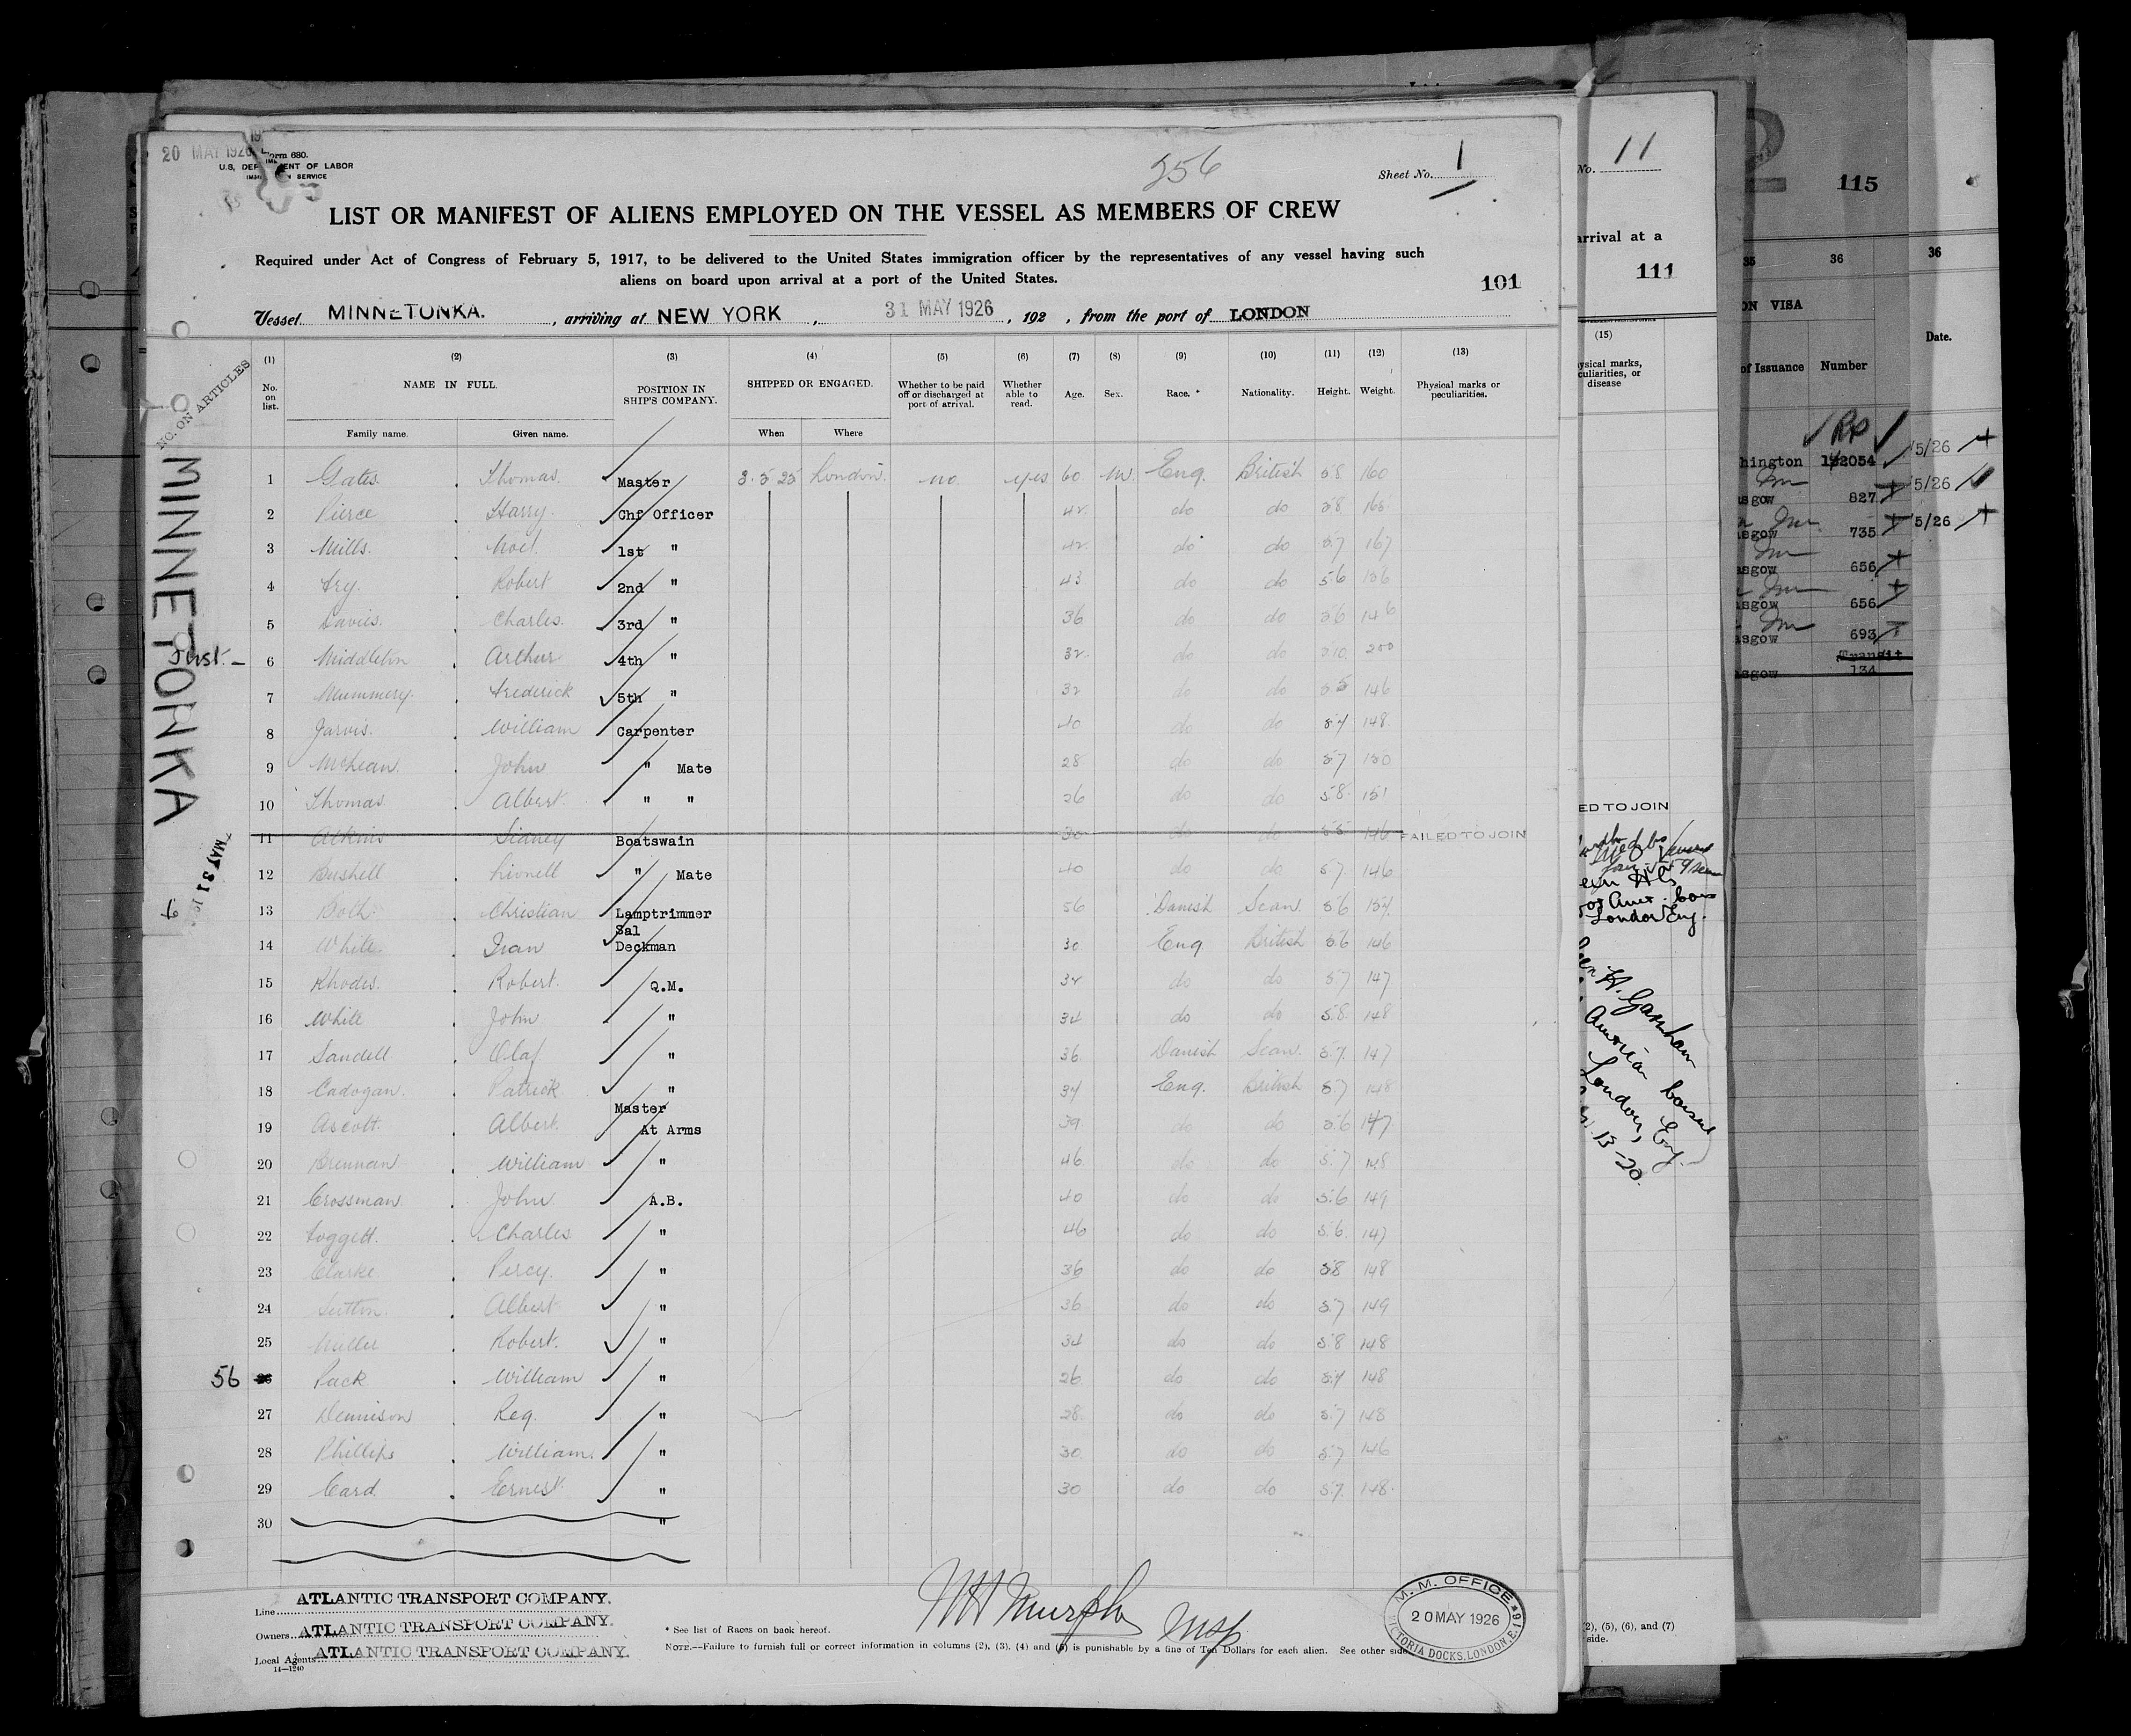 20 MAY 1926
Form 680.
U.S. DEPARTMENT OF LABOR
IMMIGRATION SERVICE
256
Sheet No. 1
LIST OR MANIFEST OF ALIENS EMPLOYED ON THE VESSEL AS MEMBERS OF CREW
Required under Act of Congress of February 5, 1917, to be delivered to the United States immigration officer by the representatives of any vessel having such
aliens on board upon arrival at a port of the United States.
101
Vessel MINNETONKA. , arriving at NEW YORK , 31 MAY 1926 , 192 , from the port of LONDON
NO. ON ARTICLES
MINNETONKA
MAY 31
(1) (2) (3) (4) (5) (6) (7) (8) (9) (10) (11) (12) (13)
No. on list. NAME IN FULL. POSITION IN SHIP'S COMPANY. SHIPPED OR ENGAGED. Whether to be paid off or discharged at port of arrival. Whether able to read. Age. Sex. Race. * Nationality. Height. Weight. Physical marks or peculiarities.
Family name. Given name. When Where
1 Gates Thomas Master 3.5.25 London. no yes 60 M. Eng. British 5.8 160
2 Pierce Harry Chf Officer 42 do do 5.8 168
3 Mills Noel 1st " 42 do do 5.7 167
4 Fry Robert 2nd " 43 do do 5.6 156
5 Davies Charles 3rd " 36 do do 5.6 146
6 Middleton Arthur 4th " 32 do do 5.10 200
7 Mummery Frederick 5th " 32 do do 5.5 146
8 Jarvis William Carpenter 40 do do 5.7 148
9 McLean John " Mate 28 do do 5.7 150
10 Thomas Albert " " 26 do do 5.8 151
11 Atkins Sidney Boatswain 30 do do 5.5 146 FAILED TO JOIN
12 Bushell Lionell " Mate 40 do do 5.7 146
13 Both Christian Lamptrimmer 56 Danish Scan. 5.6 157
Sal
14 White Ivan Deckman 30 Eng British 5.6 146
15 Rhodes Robert Q.M. 32 do do 5.7 147
16 White John " 34 do do 5.8 148
17 Sandell Olaf " 36 Danish Scan. 5.7 147
18 Cadogan Patrick " 34 Eng. British 5.7 148
Master
19 Ascott Albert At Arms 39 do do 5.6 147
20 Brennan William " 46 do do 5.7 148
21 Crossman John A.B. 40 do do 5.6 149
22 Foggitt Charles " 46 do do 5.6 147
23 Clarke Percy " 36 do do 5.8 148
24 Sutton Albert " 36 do do 5.7 149
25 Miller Robert " 34 do do 5.8 148
56 26 Pack William " 26 do do 5.7 148
27 Dennison Reg. " 28 do do 5.7 148
28 Phillips William " 30 do do 5.7 146
29 Card Ernest " 30 do do 5.7 148
30 "
Line ATLANTIC TRANSPORT COMPANY.
Owners ATLANTIC TRANSPORT COMPANY.
Local Agents ATLANTIC TRANSPORT COMPANY.
14—1240
* See list of Races on back hereof.
NOTE.—Failure to furnish full or correct information in columns (2), (3), (4) and (5) is punishable by a fine of Ten Dollars for each alien. See other side.
Murphy Insp
M. M. OFFICE
20 MAY 1926
VICTORIA DOCKS, LONDON, E.16
No. 11
arrival at a
111
(15)
ysical marks,
culiarities, or
disease
ED TO JOIN
London Eng.
H. Garnham
American Consul
London, Eng.
13-20
(2), (5), (6), and (7)
side.
2
115
35 36
ON VISA
of Issuance Number
hington 132054
asgow 827
asgow 735
asgow 656
asgow 656
asgow 693
Transit
asgow 134
36
Date.
5/26
5/26
5/26